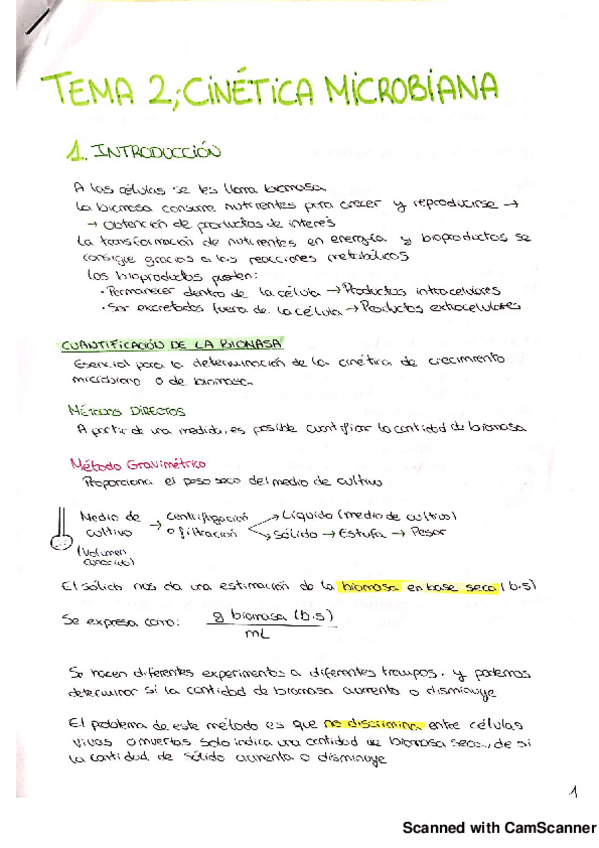 TEMA 2; CINÉTICA MICROBIANA
1. INTRODUCCIÓN
A las células se les llama biomasa
La biomasa consume nutrientes para crecer y reproducirse →
→ Obtención de productos de interés
La transformación de nutrientes en energía y bioproductos se
consigue gracias a las reacciones metabólicas
Los bioproductos pueden:
· Permanecer dentro de la célula → Productos intracelulares
· Ser excretados fuera de la célula → Productos extracelulares
CUANTIFICACIÓN DE LA BIOMASA
Esencial para la determinación de la cinética de crecimiento
microbiano o de biomasa.
MÉTODOS DIRECTOS
A partir de una medida, es posible cuantificar la cantidad de biomasa
Método Gravimétrico
Proporciona el peso seco del medio de cultivo
Medio de cultivo (Volumen conocido) → Centrifugación o filtración → Líquido (medio de cultivo)
→ Sólido → Estufa → Pesar
El sólido nos da una estimación de la biomasa en base seca (b.s)
Se expresa como: g biomasa (b.s)
mL
Se hacen diferentes experimentos a diferentes tiempos, y podemos
determinar si la cantidad de biomasa aumenta o disminuye
El problema de este método es que no discrimina entre células
vivas o muertas solo indica una cantidad de biomasa seca, de si
la cantidad de sólido aumenta o disminuye
1
Scanned with CamScanner